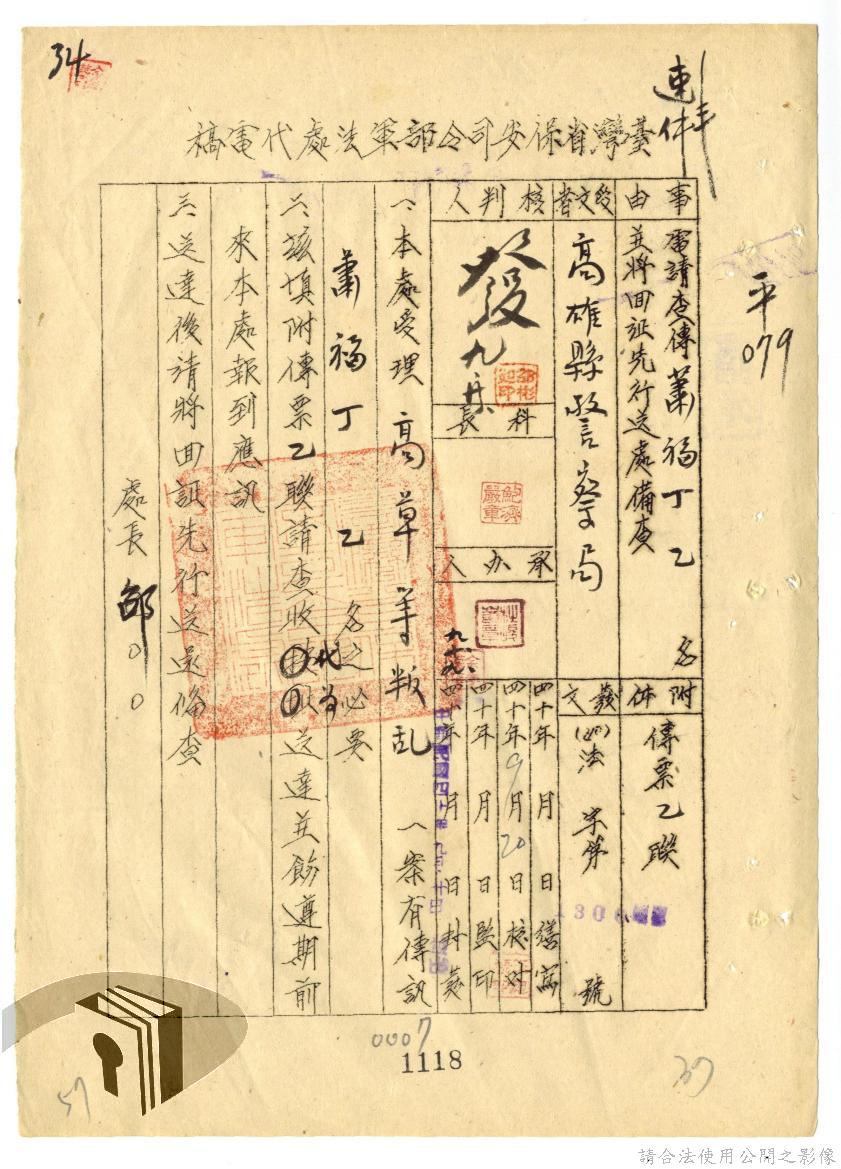 34
速件
平
079
臺灣省保安司令部軍法處代電稿
事由
電請查傳蕭福丁乙名
並將回証先行送處備查
附件
傳票乙聯
受文者
高雄縣警察局
發文
(40)法字第
號
核判人
發
九
科長
承办人
四十年 月 日繕寫
四十年9月20日核对
四十年 月 日監印
四十年 月 日封發
一、本處受理高草等叛乱一案有傳訊
蕭福丁乙名之必要
二、茲填附傳票乙聯請查收代為送達並飭遵期前
來本處報到應訊
三、送達後請將回証先行送還備查
處長邵○○
0007
1118
37
57
請合法使用公開之影像